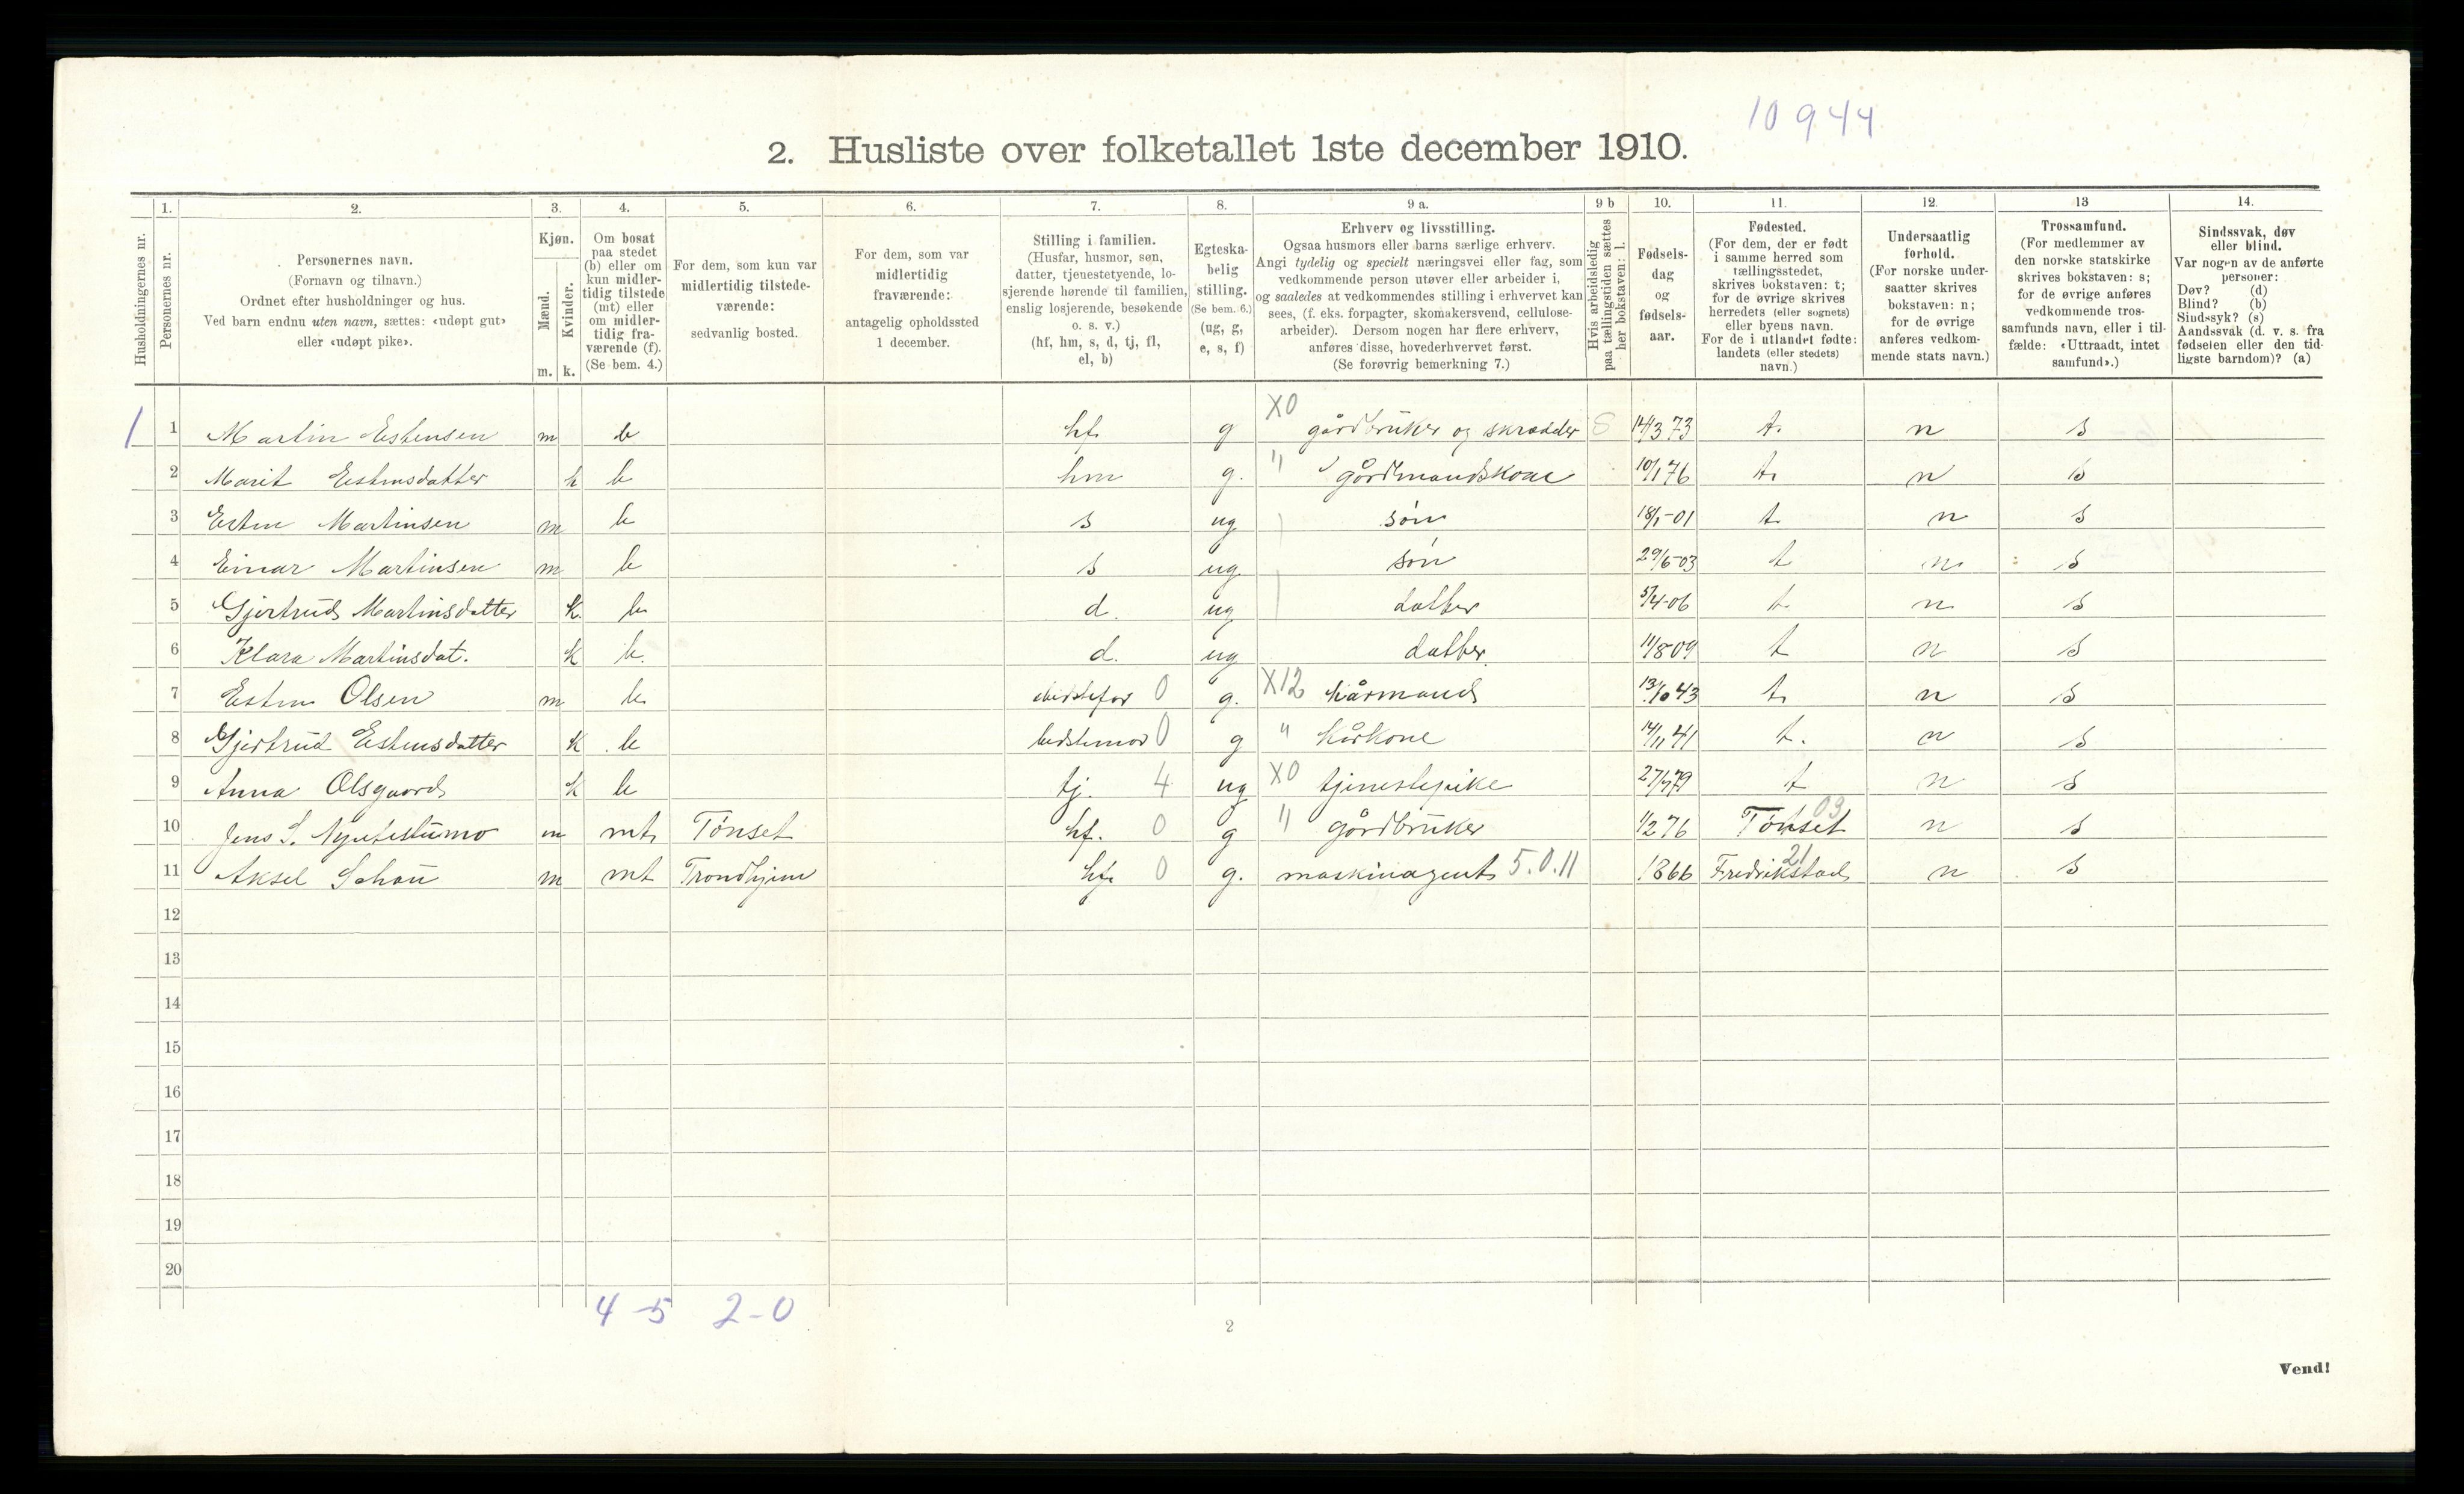 10 944
2. Husliste over folketallet 1ste december 1910.
1. 2. 3. 4. 5. 6. 7. 8. 9 a. 9 b 10. 11. 12. 13 14.
Husholdningernes nr.
Personernes nr.
Personernes navn.
(Fornavn og tilnavn.)
Ordnet efter husholdninger og hus.
Ved barn endnu uten navn, sættes: «udøpt gut»
eller «udøpt pike».
Kjøn.
Mænd.
Kvinder.
m. k.
Om bosat
paa stedet
(b) eller om
kun midler-
tidig tilstede
(mt) eller
om midler-
tidig fra-
værende (f).
(Se bem. 4.)
For dem, som kun var
midlertidig tilstede-
værende:
sedvanlig bosted.
For dem, som var
midlertidig
fraværende:
antagelig opholdssted
1 december.
Stilling i familien.
(Husfar, husmor, søn,
datter, tjenestetyende, lo-
sjerende hørende til familien,
enslig losjerende, besøkende
o. s. v.)
(hf, hm, s, d, tj, fl,
el, b)
Egteska-
belig
stilling.
(Se bem. 6.)
(ug, g,
e, s, f)
Erhverv og livsstilling.
Ogsaa husmors eller barns særlige erhverv.
Angi tydelig og specielt næringsvei eller fag, som
vedkommende person utøver eller arbeider i,
og saaledes at vedkommendes stilling i erhvervet kan
sees, (f. eks. forpagter, skomakersvend, cellulose-
arbeider). Dersom nogen har flere erhverv,
anføres disse, hovederhvervet først.
(Se forøvrig bemerkning 7.)
Hvis arbeidsledig
paa tællingstiden sættes
her bokstaven: l.
Fødsels-
dag
og
fødsels-
aar.
Fødested.
(For dem, der er født
i samme herred som
tællingsstedet,
skrives bokstaven: t;
for de øvrige skrives
herredets (eller sognets)
eller byens navn.
For de i utlandet fødte:
landets (eller stedets)
navn.)
Undersaatlig
forhold.
(For norske under-
saatter skrives
bokstaven: n;
for de øvrige
anføres vedkom-
mende stats navn.)
Trossamfund.
(For medlemmer av
den norske statskirke
skrives bokstaven: s;
for de øvrige anføres
vedkommende tros-
samfunds navn, eller i til-
fælde: «Uttraadt, intet
samfund».)
Sindssvak, døv
eller blind.
Var nogen av de anførte
personer:
Døv? (d)
Blind? (b)
Sindssyk? (s)
Aandssvak (d. v. s. fra
fødselen eller den tid-
ligste barndom)? (a)
1 1 Martin Estensen m b hf. g X0 gårdbruker og skrædder S 14/3 73 t. n s
2 Marit Estensdatter k b hm g. " gårdmandskone 10/1 76 t. n s
3 Esten Martinsen m b s ug søn 18/1-01 t n s
4 Einar Martinsen m b s ug søn 29/6-03 t n s
5 Gjertrud Martinsdatter k. b d. ug datter 5/4-06 t. n s
6 Klara Martinsdat. k b. d. ug datter 11/8 09 t n s
7 Esten Olsen m b bedstefar 0 g. X12 kårmand 13/10 43 t. n s
8 Gjertrud Estensdatter k b bedstemor 0 g " kårkone 14/11 41 t. n s
9 Anna Olsgaard k b tj. 4 ug X0 tjenestepike 27/7 79 t n s
10 Jens S. m mt. Tönset hf. 0 g " gårdbruker 1/2 76 Tönset 03 n s
11 Aksel Schou m mt Trondhjem hf. 0 g. maskinagent 5.0.11 1866 Fredrikstad 21 n s
12
13
14
15
16
17
18
19
20
4-5 2-0
2
Vend!